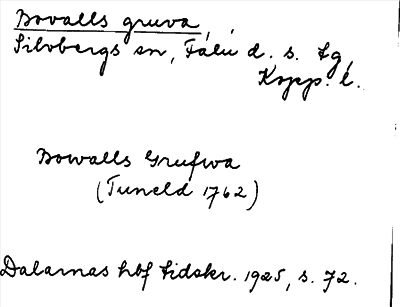 Bovalls gruva,
Silvbergs sn, Falu d. s. lg,
Kopp. l.
Bowalls Grufwa
(Tuneld 1762)
Dalarnas hbf tidskr. 1925, s. 72.